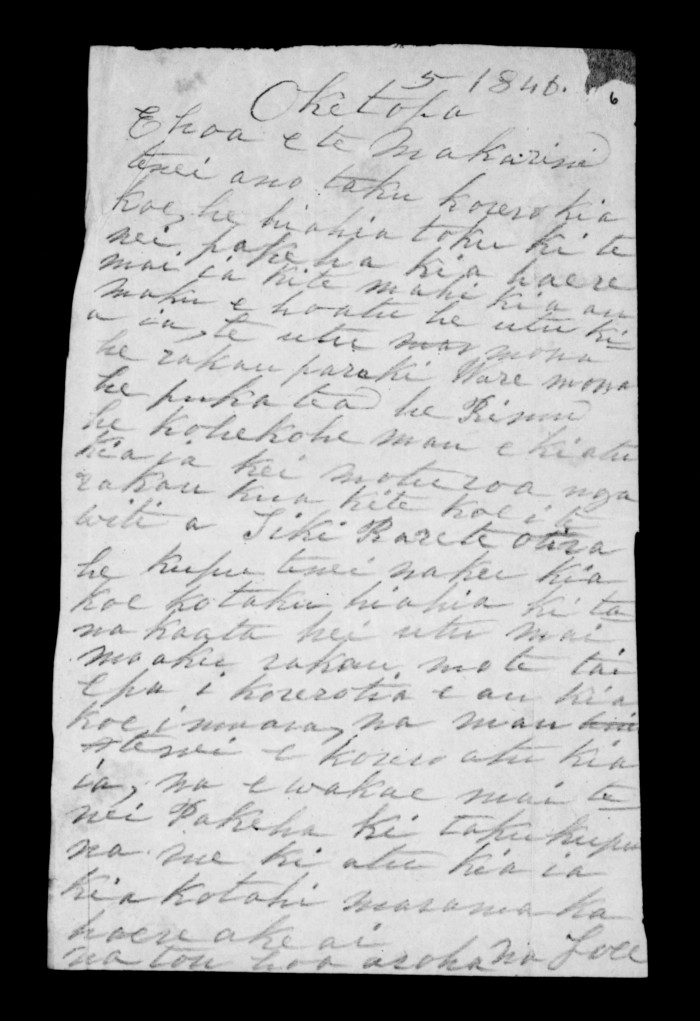 5 1846.
6
Oketopa
Ehoa e te Makarini
tenei ano taku korero kia
koe, he hiahia toku ki te
nei pakeha kia haere
mai ia kite mahi kia au
maku e hoatu he utu ki
a ia, te utu mona
he rakau paraki Ware mona
he puka tea he Rimu
he kohekohe mau e ki atu
kia ia kei moturoa nga
rakau kua kite koe i te
witi a Tiki Parete otira
he kupu tenei nakeu kia
koe ko taku hiahia ki ta
na kaata hei utu mai
mo aku rakau mo te tai
epa i korerotia e au kia
koe i mua, na mau
e korero atu kia
ia, na e wakae mai te
nei Pakeha ki taku kupu
na me ki atu kia ia
kia kotahi marama ka
haere ake ai
na tou hoa aroha na